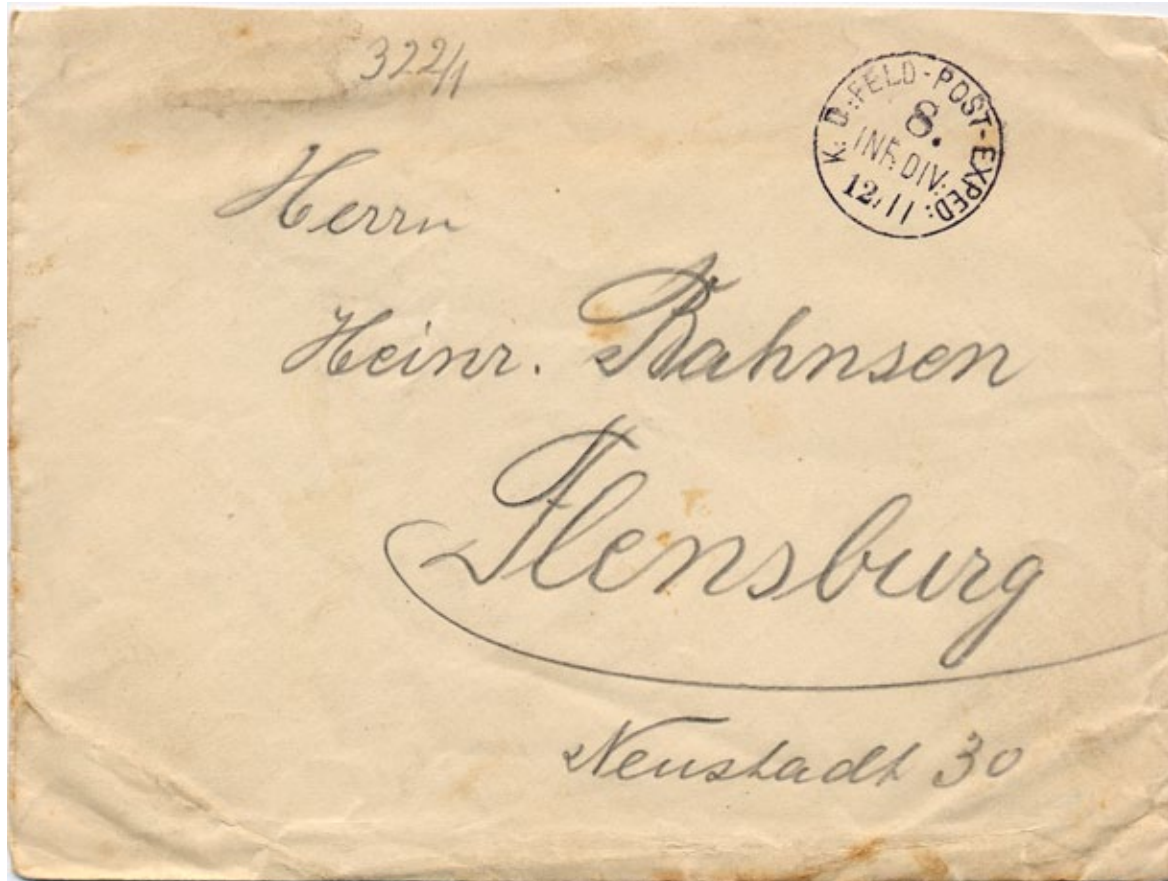 322/1
K. D. FELD-POST-EXPED:
8.
INF. DIV:
12/11
Herrn
Heinr. Bahnsen
Flensburg
Neustadt 30